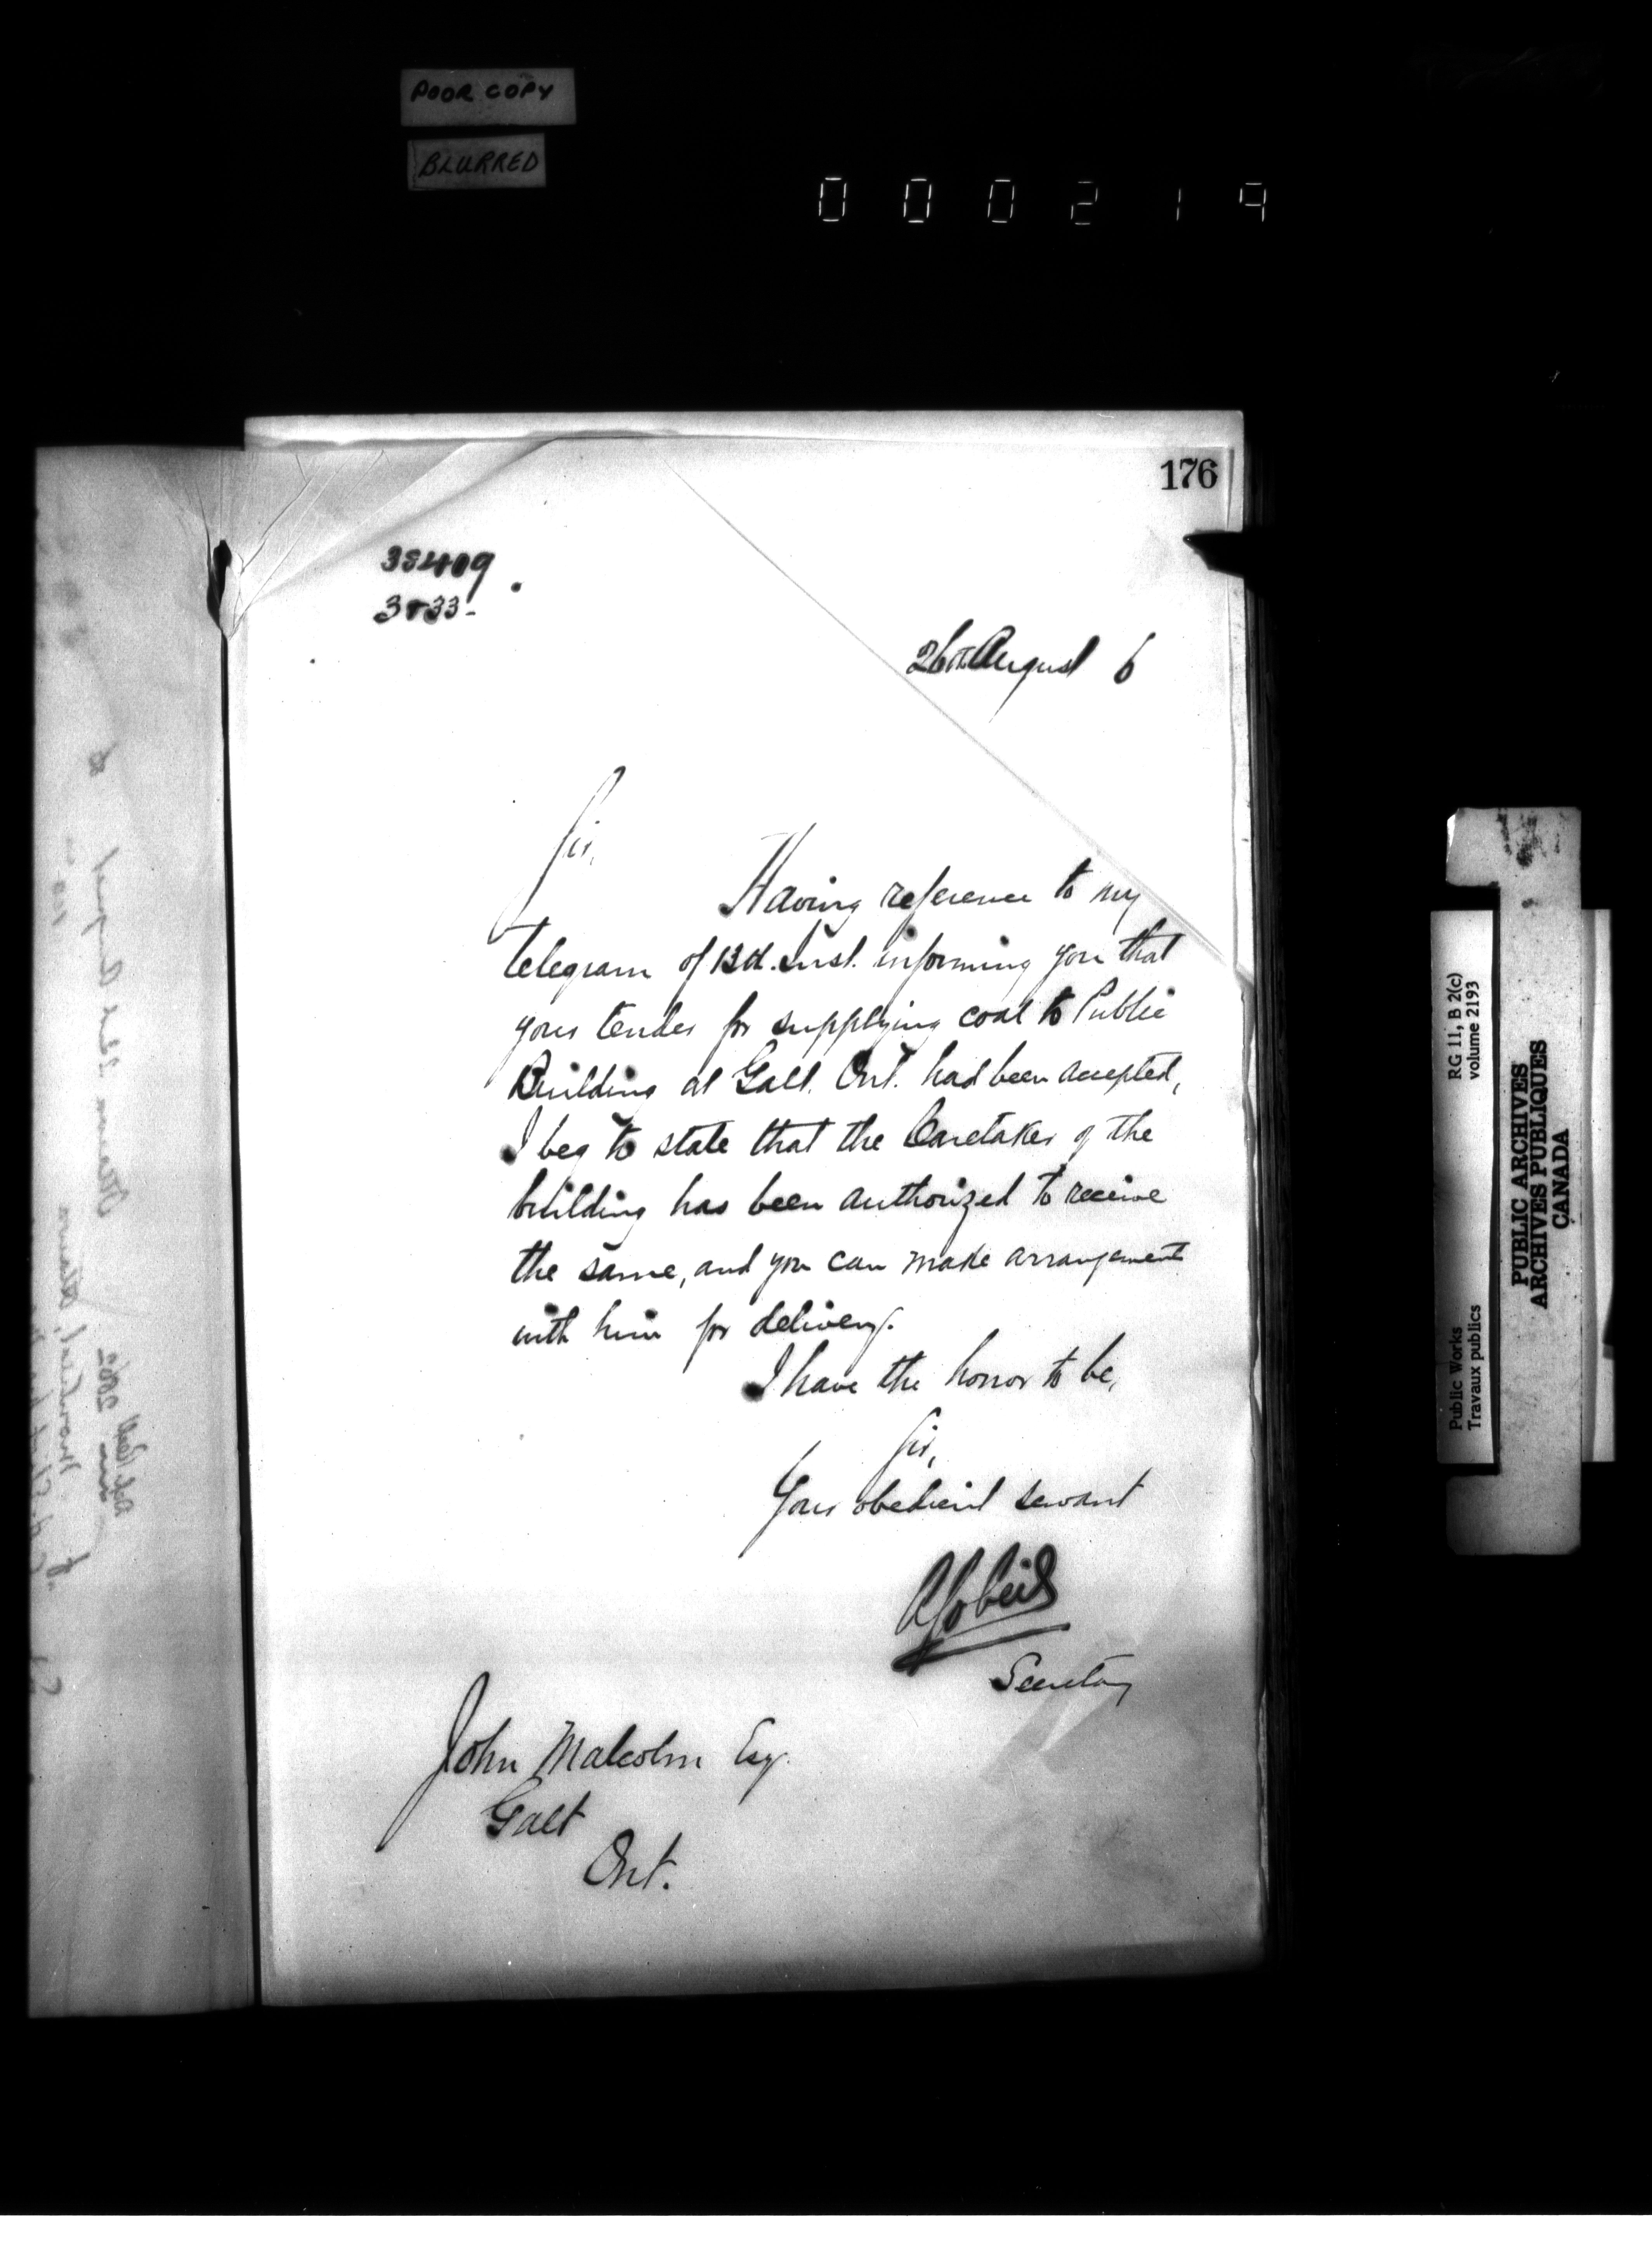 POOR COPY
BLURRED
000219
176
26th August 6
Sir,
Having reference to my
telegram of inst. informing you that
your tender for supplying coal to Public
Building at Galt. Ont. had been accepted,
I beg to state that the Caretaker of the
building has been authorized to receive
the same, and you can make arrangement
with him for delivery.
I have the honor to be,
Sir,
Your obedient servant
Secretary
John Malcolm Esq.
Galt
Ont.
RG 11, B 2(c)
volume 2193
Public Works
Travaux publics
PUBLIC ARCHIVES
ARCHIVES PUBLIQUES
CANADA